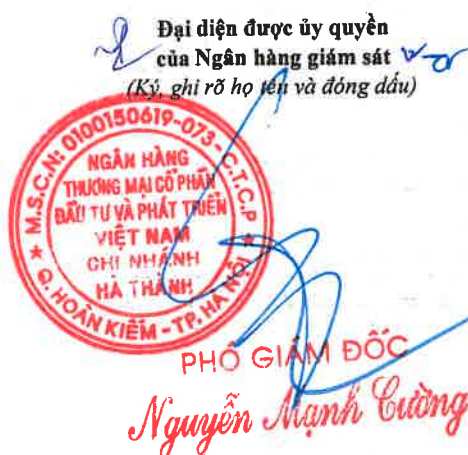 Đại diện được ủy quyền
của Ngân hàng giám sát
(Ký, ghi rõ họ tên và đóng dấu)
M.S.C.N: 0100150619-073-C.T.C.P
NGÂN HÀNG
THƯƠNG MẠI CỔ PHẦN
ĐẦU TƯ VÀ PHÁT TRIỂN
VIỆT NAM
CHI NHÁNH
HÀ THÀNH
Q. HOÀN KIẾM - TP. HÀ NỘI
PHÓ GIÁM ĐỐC
Nguyễn Mạnh Cường